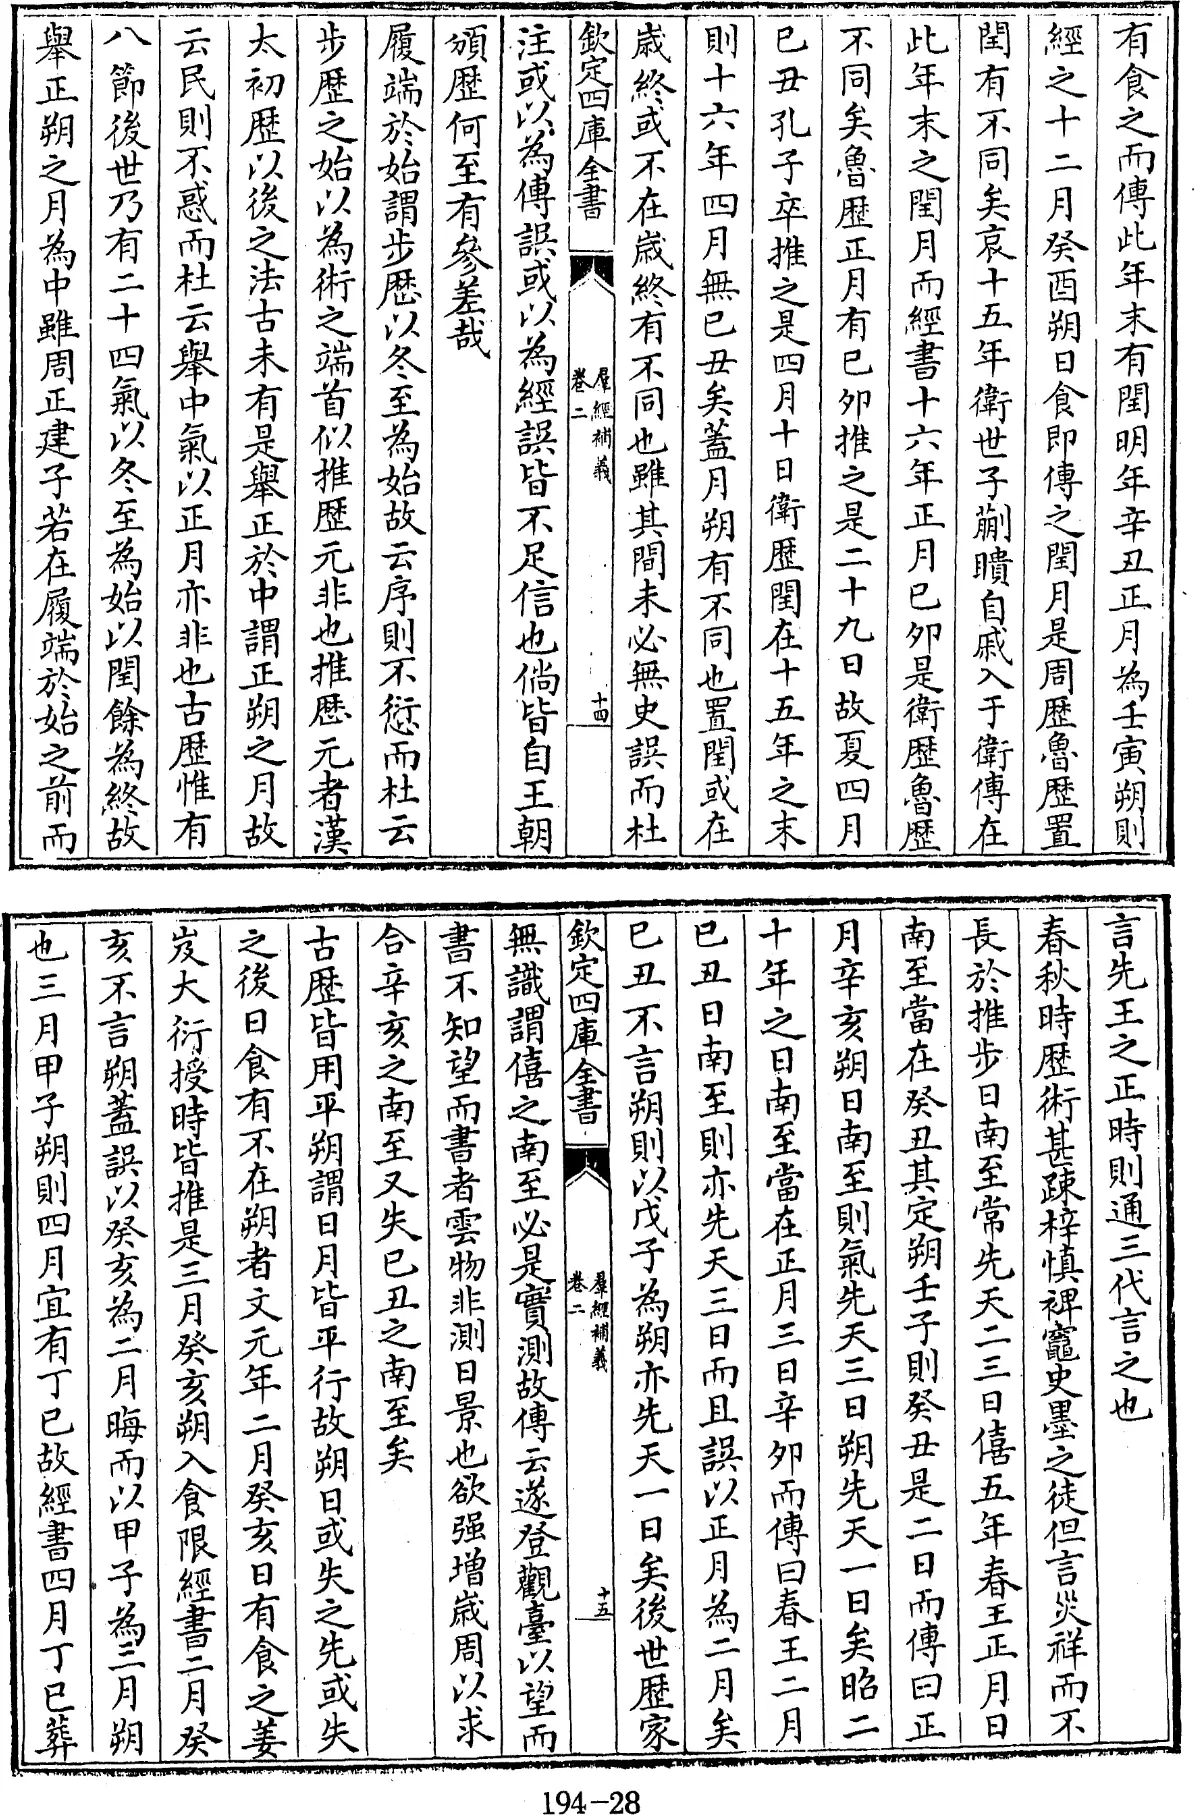 有食之而傳此年末有閏明年辛丑正月為壬寅朔則
經之十二月癸酉朔日食即傳之閏月是周歴魯歴置
閏有不同矣哀十五年衛世子蒯聵自戚入于衛傳在
此年末之閏月而經書十六年正月己夘是衛歴魯歴
不同矣魯歴正月有己夘推之是二十九日故夏四月
己丑孔子卒推之是四月十日衛歴閏在十五年之末
則十六年四月無己丑矣蓋月朔有不同也置閏或在
歳終或不在歳終有不同也雖其間未必無史誤而杜
欽定四庫全書
羣經補義
卷二
十四
注或以為傳誤或以為經誤皆不足信也倘皆自王朝
頒歴何至有參差哉
履端於始謂步歴以冬至為始故云序則不愆而杜云
步歴之始以為術之端首似推歴元非也推歴元者漢
太初歴以後之法古未有是舉正於中謂正朔之月故
云民則不惑而杜云舉中氣以正月亦非也古歴惟有
八節後世乃有二十四氣以冬至為始以閏餘為終故
舉正朔之月為中雖周正建子若在履端於始之前而
言先王之正時則通三代言之也
春秋時歴術甚疎梓慎裨竈史墨之徒但言災祥而不
長於推步日南至常先天二三日僖五年春王正月日
南至當在癸丑其定朔壬子則癸丑是二日而傳曰正
月辛亥朔日南至則氣先天三日朔先天一日矣昭二
十年之日南至當在正月三日辛夘而傳曰春王二月
己丑日南至則亦先天三日而且誤以正月為二月矣
己丑不言朔則以戊子為朔亦先天一日矣後世歴家
欽定四庫全書
羣經補義
卷二
十五
無識謂僖之南至必是實測故傳云遂登觀臺以望而
書不知望而書者雲物非測日景也欲强增歳周以求
合辛亥之南至又失己丑之南至矣
古歴皆用平朔謂日月皆平行故朔日或失之先或失
之後日食有不在朔者文元年二月癸亥日有食之姜
岌大衍授時皆推是三月癸亥朔入食限經書二月癸
亥不言朔蓋誤以癸亥為二月晦而以甲子為三月朔
也三月甲子朔則四月宜有丁巳故經書四月丁巳葬
194-28